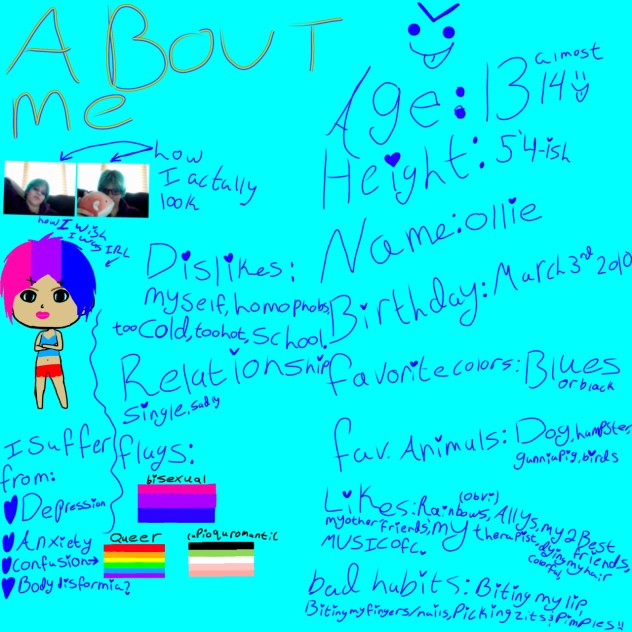 ABOUT
me
how
I actally
look
how I wish
I was IRL
Dislikes:
myself, homophobs,
too cold, too hot, School.
Relationship
single, sadly
I suffer
from:
Depression
Anxiety
confusion→
Body disformia?
flags:
bisexual
Queer
cupioquromantic
Age: 13
almost
14
Height: 5'4-ish
Name: ollie
Birthday: March 3rd 2010
favorite colors: Blues
or black
fav. Animals: Dog, hampster,
gunniapig, birds
Likes: Rainbows, (obvi) Allys, my 2 Best
friends,
my other friends, my therapist, dying my hair
colorful,
MUSIC ofc.
bad habits: Biting my lip,
Biting my fingers/nails, Picking zits & Pimples!!